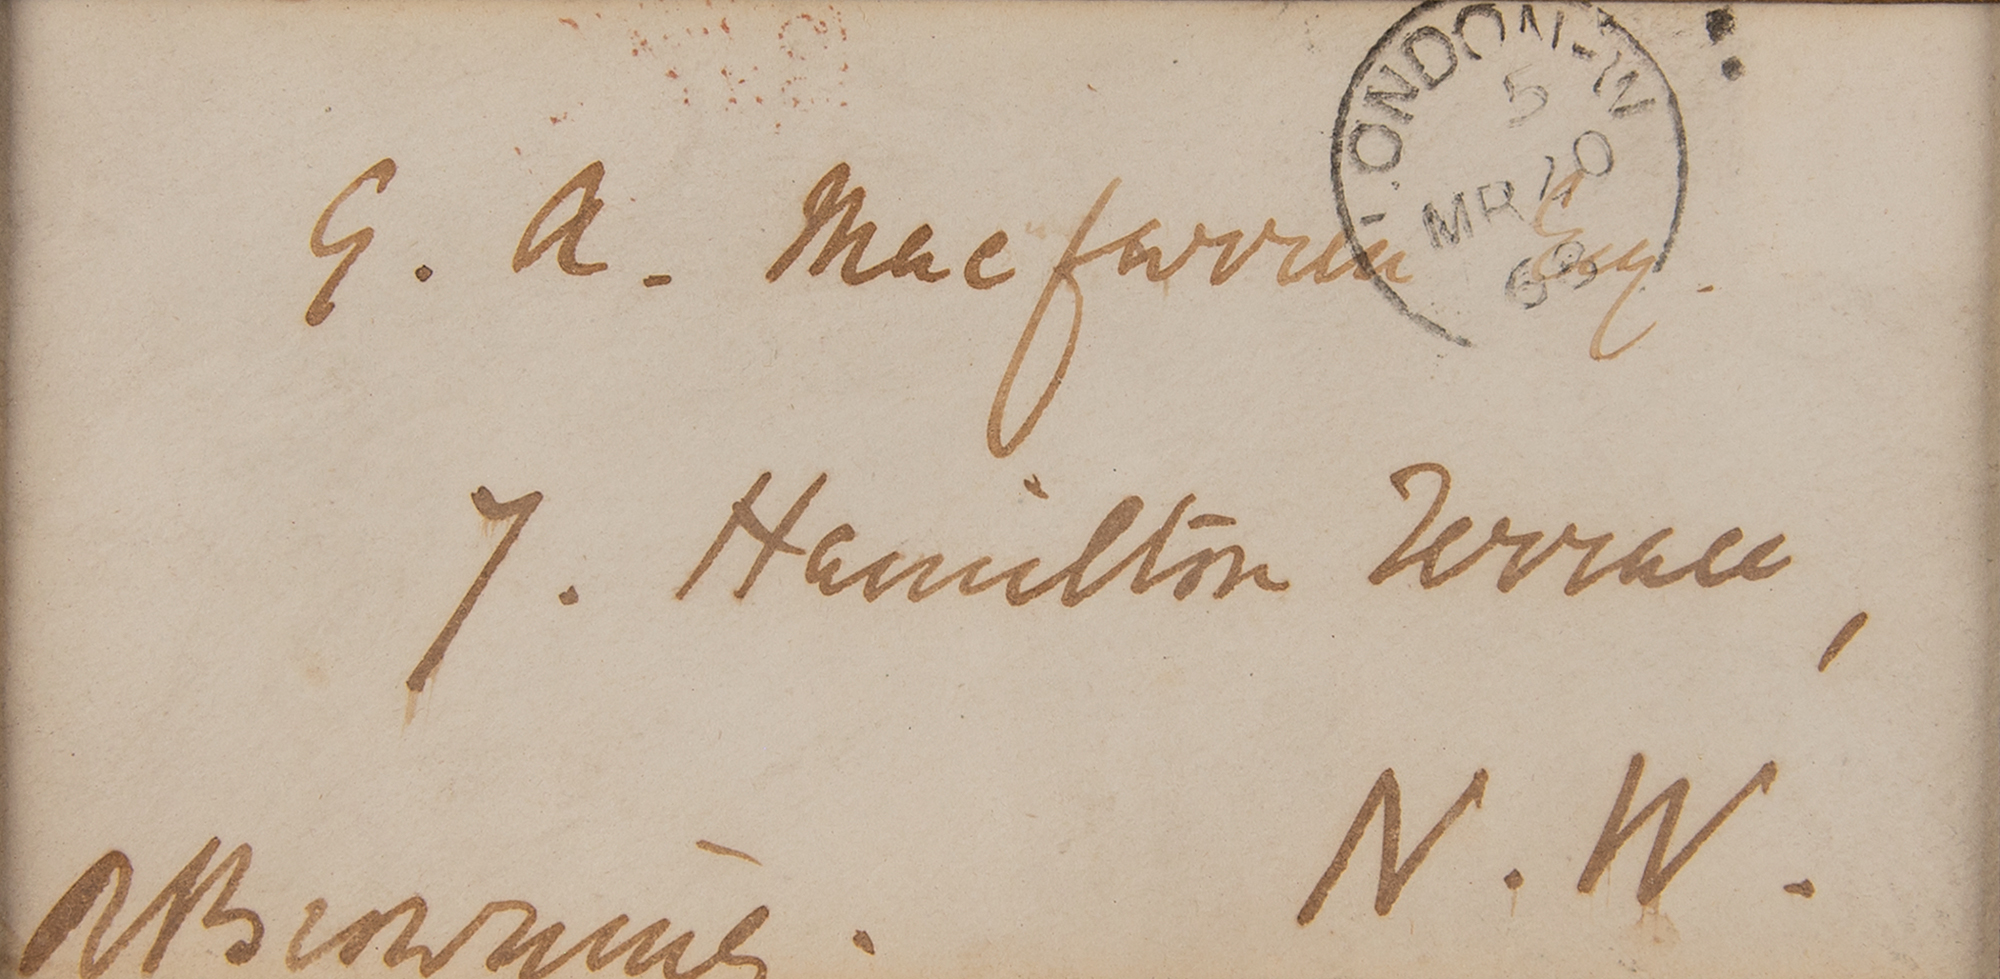 LONDON-W
5
MR 10
68
G. A. Macfarren Esq.
7. Hamilton Terrace,
N. W.
RBrowning.